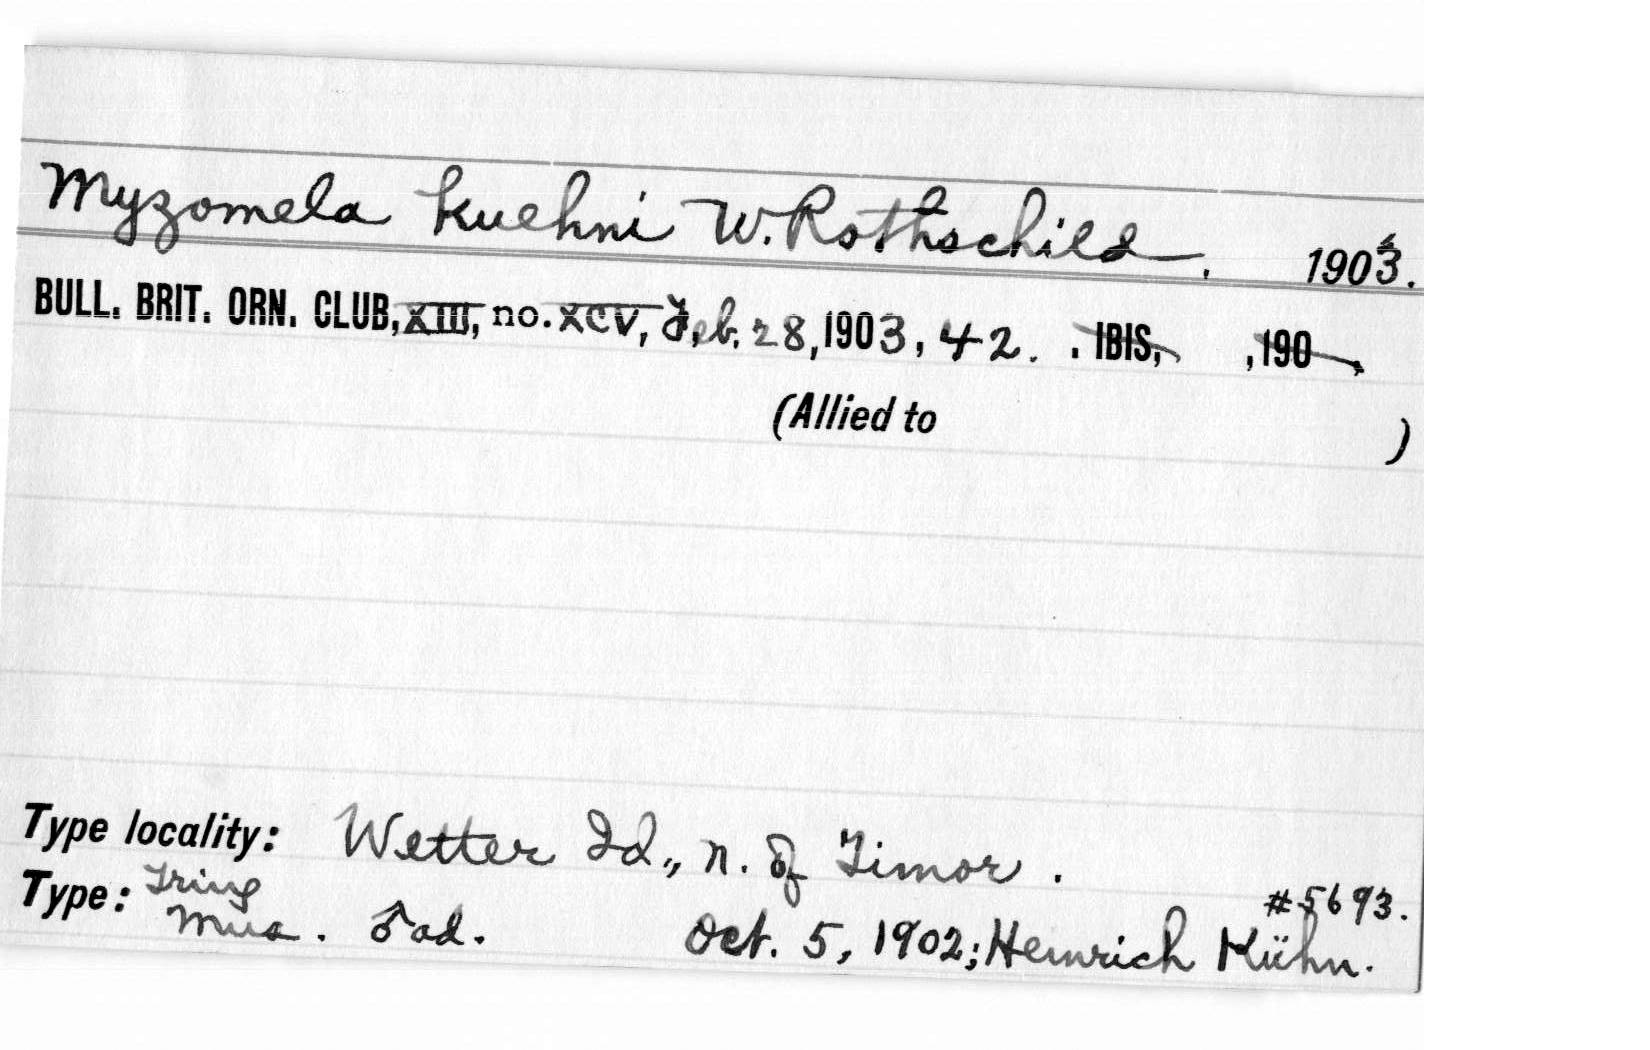 Myzomela kuehni W. Rothschild. 1903.
BULL. BRIT. ORN. CLUB, XIII, no. XCV, Feb. 28, 1903, 42. . IBIS, , 190 ,
(Allied to )
Type locality: Wetter Id., n. of Timor .
#5693.
Type: Tring
Mus. ♂ad. Oct. 5, 1902; Heinrich Kühn.